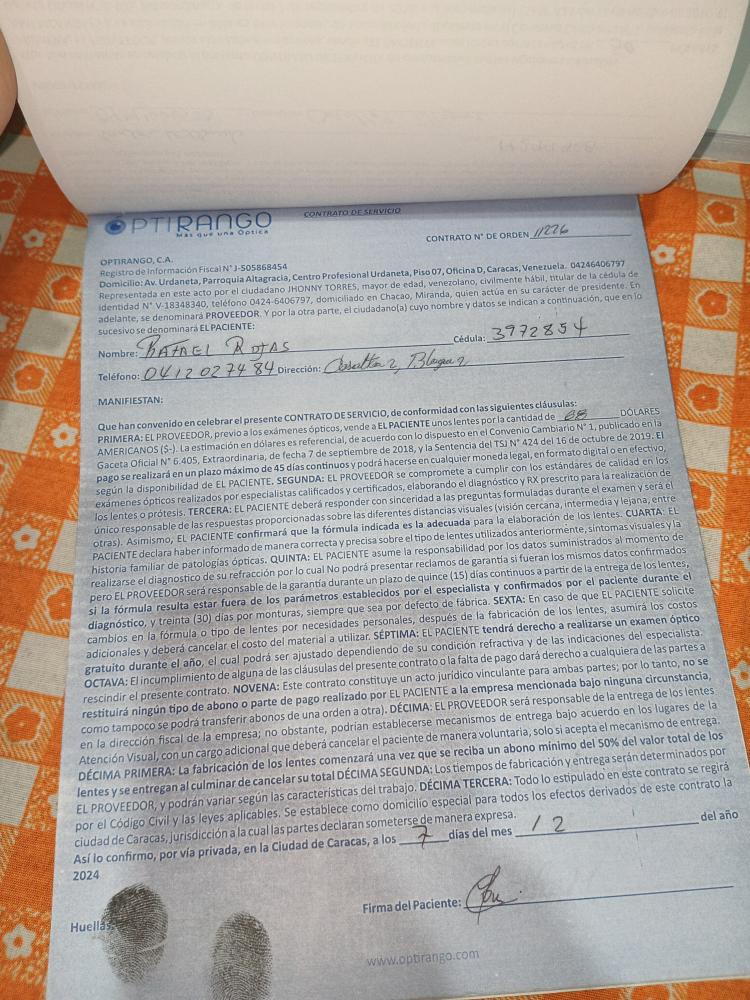 OPTIRANGO
Más que una Óptica
CONTRATO DE SERVICIO
CONTRATO N° DE ORDEN 11226
OPTIRANGO, C.A.
Registro de Información Fiscal N° J-505868454
Domicilio: Av. Urdaneta, Parroquia Altagracia, Centro Profesional Urdaneta, Piso 07, Oficina D, Caracas, Venezuela. 04246406797
Representada en este acto por el ciudadano JHONNY TORRES, mayor de edad, venezolano, civilmente hábil, titular de la cédula de
Identidad N° V-18348340, teléfono 0424-6406797, domiciliado en Chacao, Miranda, quien actúa en su carácter de presidente. En
adelante, se denominará PROVEEDOR. Y por la otra parte, el ciudadano(a) cuyo nombre y datos se indican a continuación, que en lo
sucesivo se denominará EL PACIENTE:
Nombre: RAFAEL ROJAS Cédula: 3972854
Teléfono: 0412027484 Dirección:
MANIFIESTAN:
Que han convenido en celebrar el presente CONTRATO DE SERVICIO, de conformidad con las siguientes cláusulas:
PRIMERA: EL PROVEEDOR, previo a los exámenes ópticos, vende a EL PACIENTE unos lentes por la cantidad de DÓLARES
AMERICANOS ($-). La estimación en dólares es referencial, de acuerdo con lo dispuesto en el Convenio Cambiario N° 1, publicado en la
Gaceta Oficial N° 6.405, Extraordinaria, de fecha 7 de septiembre de 2018, y la Sentencia del TSJ N° 424 del 16 de octubre de 2019. El
pago se realizará en un plazo máximo de 45 días continuos y podrá hacerse en cualquier moneda legal, en formato digital o en efectivo,
según la disponibilidad de EL PACIENTE. SEGUNDA: EL PROVEEDOR se compromete a cumplir con los estándares de calidad en los
exámenes ópticos realizados por especialistas calificados y certificados, elaborando el diagnóstico y RX prescrito para la realización de
los lentes o prótesis. TERCERA: EL PACIENTE deberá responder con sinceridad a las preguntas formuladas durante el examen y será el
único responsable de las respuestas proporcionadas sobre las diferentes distancias visuales (visión cercana, intermedia y lejana, entre
otras). Asimismo, EL PACIENTE confirmará que la fórmula indicada es la adecuada para la elaboración de los lentes. CUARTA: EL
PACIENTE declara haber informado de manera correcta y precisa sobre el tipo de lentes utilizados anteriormente, síntomas visuales y la
historia familiar de patologías ópticas. QUINTA: EL PACIENTE asume la responsabilidad por los datos suministrados al momento de
realizarse el diagnostico de su refracción por lo cual No podrá presentar reclamos de garantía si fueran los mismos datos confirmados
pero EL PROVEEDOR será responsable de la garantía durante un plazo de quince (15) días continuos a partir de la entrega de los lentes,
si la fórmula resulta estar fuera de los parámetros establecidos por el especialista y confirmados por el paciente durante el
diagnóstico, y treinta (30) días por monturas, siempre que sea por defecto de fábrica. SEXTA: En caso de que EL PACIENTE solicite
cambios en la fórmula o tipo de lentes por necesidades personales, después de la fabricación de los lentes, asumirá los costos
adicionales y deberá cancelar el costo del material a utilizar. SÉPTIMA: EL PACIENTE tendrá derecho a realizarse un examen óptico
gratuito durante el año, el cual podrá ser ajustado dependiendo de su condición refractiva y de las indicaciones del especialista.
OCTAVA: El incumplimiento de alguna de las cláusulas del presente contrato o la falta de pago dará derecho a cualquiera de las partes a
rescindir el presente contrato. NOVENA: Este contrato constituye un acto jurídico vinculante para ambas partes; por lo tanto, no se
restituirá ningún tipo de abono o parte de pago realizado por EL PACIENTE a la empresa mencionada bajo ninguna circunstancia,
como tampoco se podrá transferir abonos de una orden a otra). DÉCIMA: EL PROVEEDOR será responsable de la entrega de los lentes
en la dirección fiscal de la empresa; no obstante, podrían establecerse mecanismos de entrega bajo acuerdo en los lugares de la
Atención Visual, con un cargo adicional que deberá cancelar el paciente de manera voluntaria, solo si acepta el mecanismo de entrega.
DÉCIMA PRIMERA: La fabricación de los lentes comenzará una vez que se reciba un abono mínimo del 50% del valor total de los
lentes y se entregan al culminar de cancelar su total DÉCIMA SEGUNDA: Los tiempos de fabricación y entrega serán determinados por
EL PROVEEDOR, y podrán variar según las características del trabajo. DÉCIMA TERCERA: Todo lo estipulado en este contrato se regirá
por el Código Civil y las leyes aplicables. Se establece como domicilio especial para todos los efectos derivados de este contrato la
ciudad de Caracas, jurisdicción a la cual las partes declaran someterse de manera expresa.
Así lo confirmo, por vía privada, en la Ciudad de Caracas, a los 7 días del mes 12 del año
2024
Huellas:
Firma del Paciente:
www.optirango.com